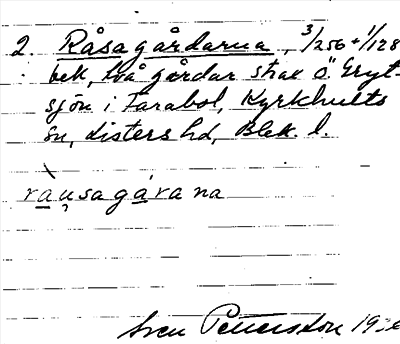 2. Råsagårdarna, 3/256+1/128
bek, två gårdar strax Ö. Gryt-
sjön i Farabol, Kyrkhults
sn, Listers hd, Blek. l.
ràu̯sagárana
Sven Pettersson